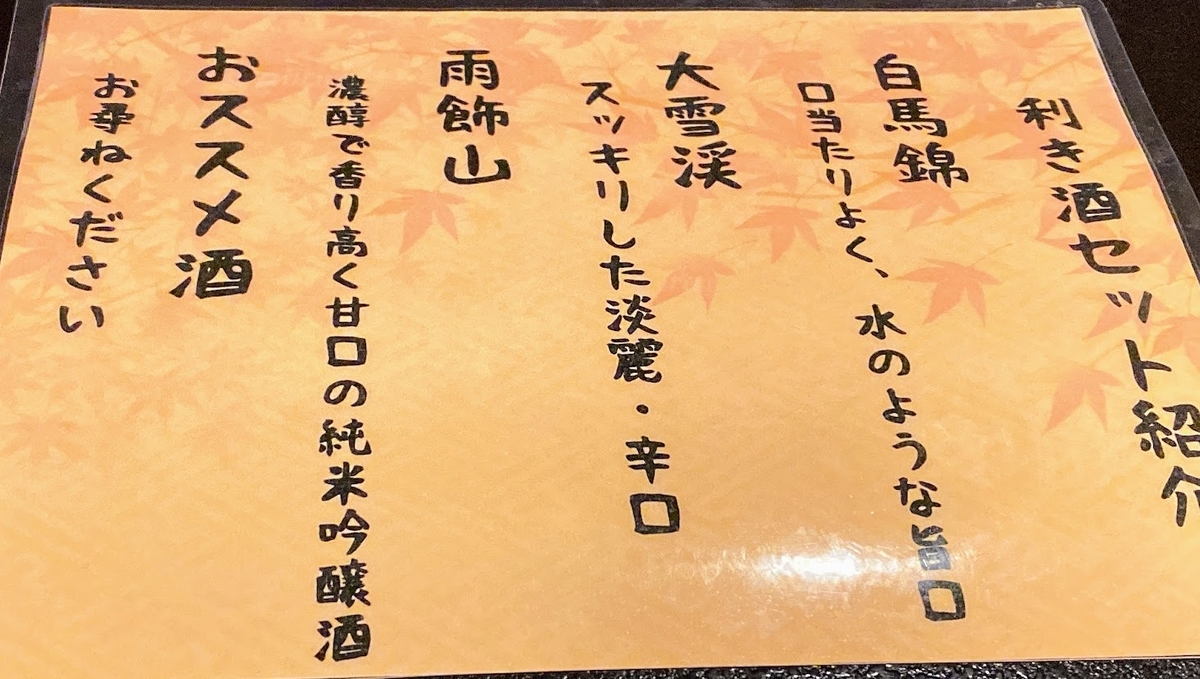 利き酒セット紹介
白馬錦
口当たりよく、水のような旨口
大雪渓
スッキリした淡麗・辛口
雨飾山
濃醇で香り高く甘口の純米吟醸酒
おススメ酒
お尋ねください